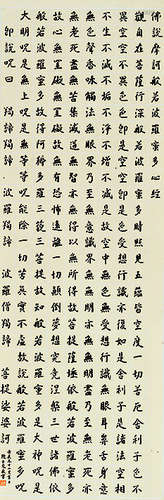 佛說摩訶般若波羅蜜多心經
觀自在菩薩行深般若波羅蜜多時照見五蘊皆空度一切苦厄舍利子色不
異空空不異色色即是空空即是色受想行識亦復如是舍利子是諸法空相
不生不滅不垢不淨不增不減是故空中無色無受想行識無眼耳鼻舌身意
無色聲香味觸法無眼界乃至無意識界無無明亦無無明盡乃至無老死亦
無老死盡無苦集滅道無智亦無得以無所得故菩提薩埵依般若波羅蜜多
故心無罣礙無罣礙故無有恐怖遠離一切顛倒夢想究竟涅槃三世諸佛依
般若波羅蜜多故得阿耨多羅三藐三菩提故知般若波羅蜜多是大神咒是
大明咒是無上咒是無等等咒能除一切苦真實不虛故說般若波羅蜜多咒
即說咒曰 揭諦揭諦 波羅揭諦 波羅僧揭諦 菩提娑婆訶